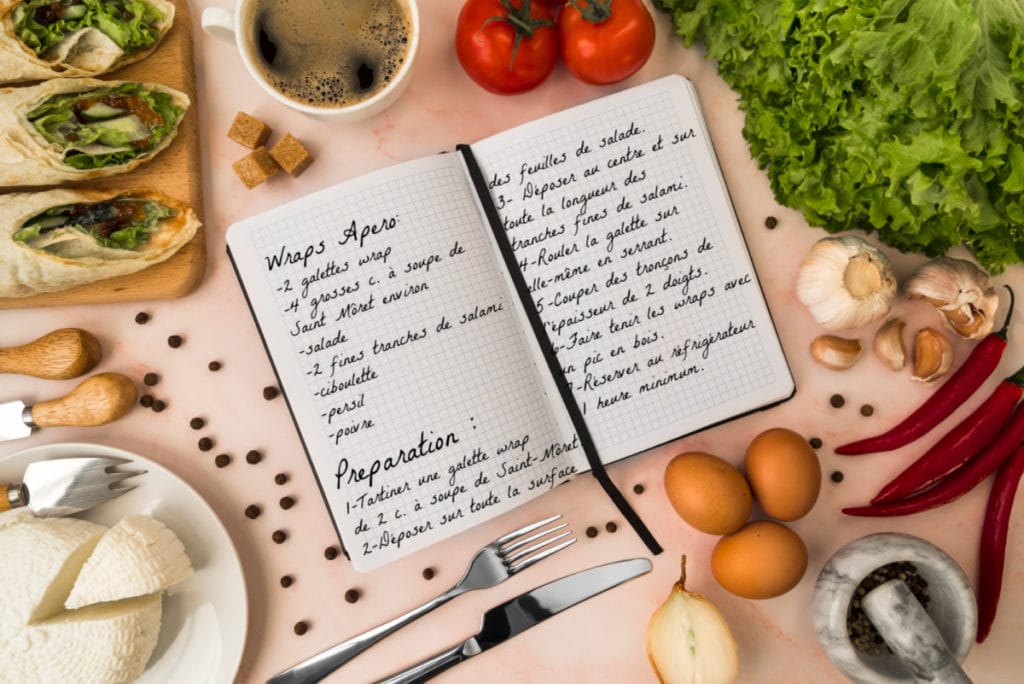 Wraps Apero:
-2 galettes wrap
-4 grosses c. à soupe de
Saint Môret environ
-salade
-2 fines tranches de salami
-ciboulette
-persil
-poivre
Preparation :
1-Tartiner une galette wrap
de 2 c. à soupe de Saint-Môret
2-Déposer sur toute la surface
des feuilles de salade.
3- Déposer au centre et sur
toute la longueur des
tranches fines de salami.
4-Rouler la galette sur
elle-même en serrant.
5-Couper des tronçons de
l'épaisseur de 2 doigts.
6-Faire tenir les wraps avec
un pic en bois.
7-Réserver au réfrigérateur
1 heure minimum.